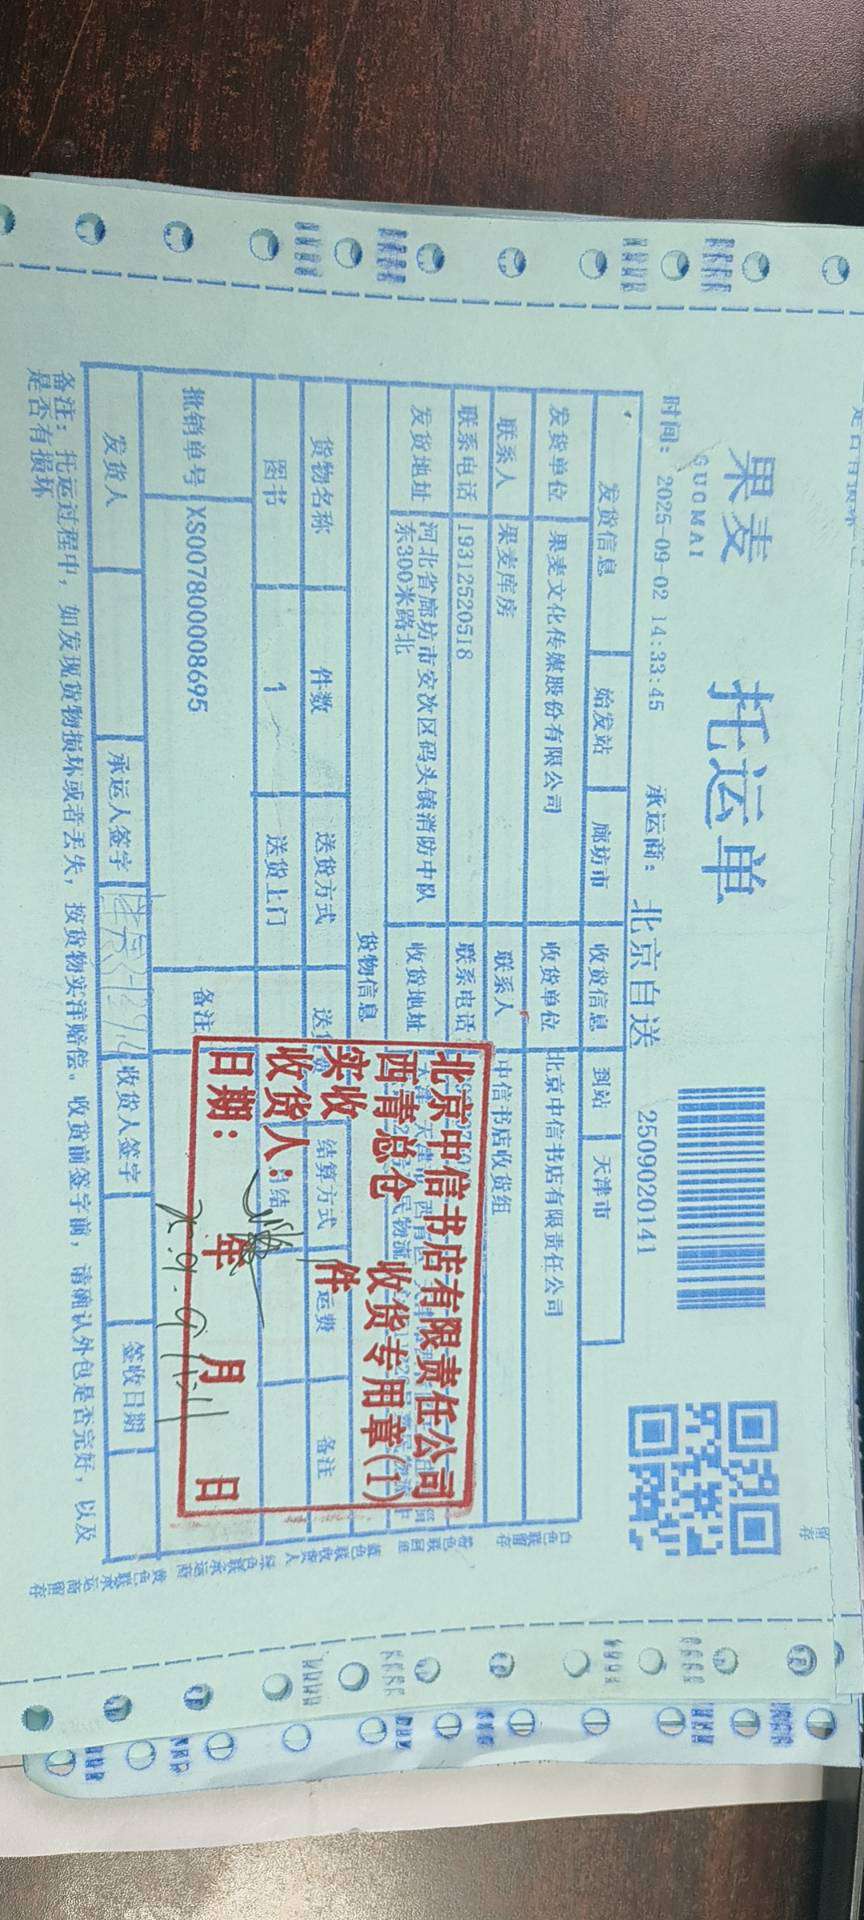 果麦
GUOMAI
托运单
时间: 2025-09-02 14:33:45 承运商: 北京自送 2509020141
发货信息 始发站 廊坊市 收货信息 到站 天津市
发货单位 果麦文化传媒股份有限公司 收货单位 北京中信书店有限责任公司
联系人 果麦库房 联系人 中信书店收货组
联系电话 19312520518 联系电话
发货地址 河北省廊坊市安次区码头镇消防中队东300米路北 收货地址
货物信息
货物名称 件数 送货方式 结算方式 运费 备注
图书 1 送货上门
批销单号 XS007800008695 备注
发货人 承运人签字 收货人签字 签收日期
备注: 托运过程中, 如发现货物损坏或者丢失, 按货物实洋赔偿。收货前签字前, 请确认外包是否完好, 以及
是否有损坏
北京中信书店有限责任公司
西青总仓 收货专用章(1)
实收 件
收货人:
日期: 年 月 日
白色联留存